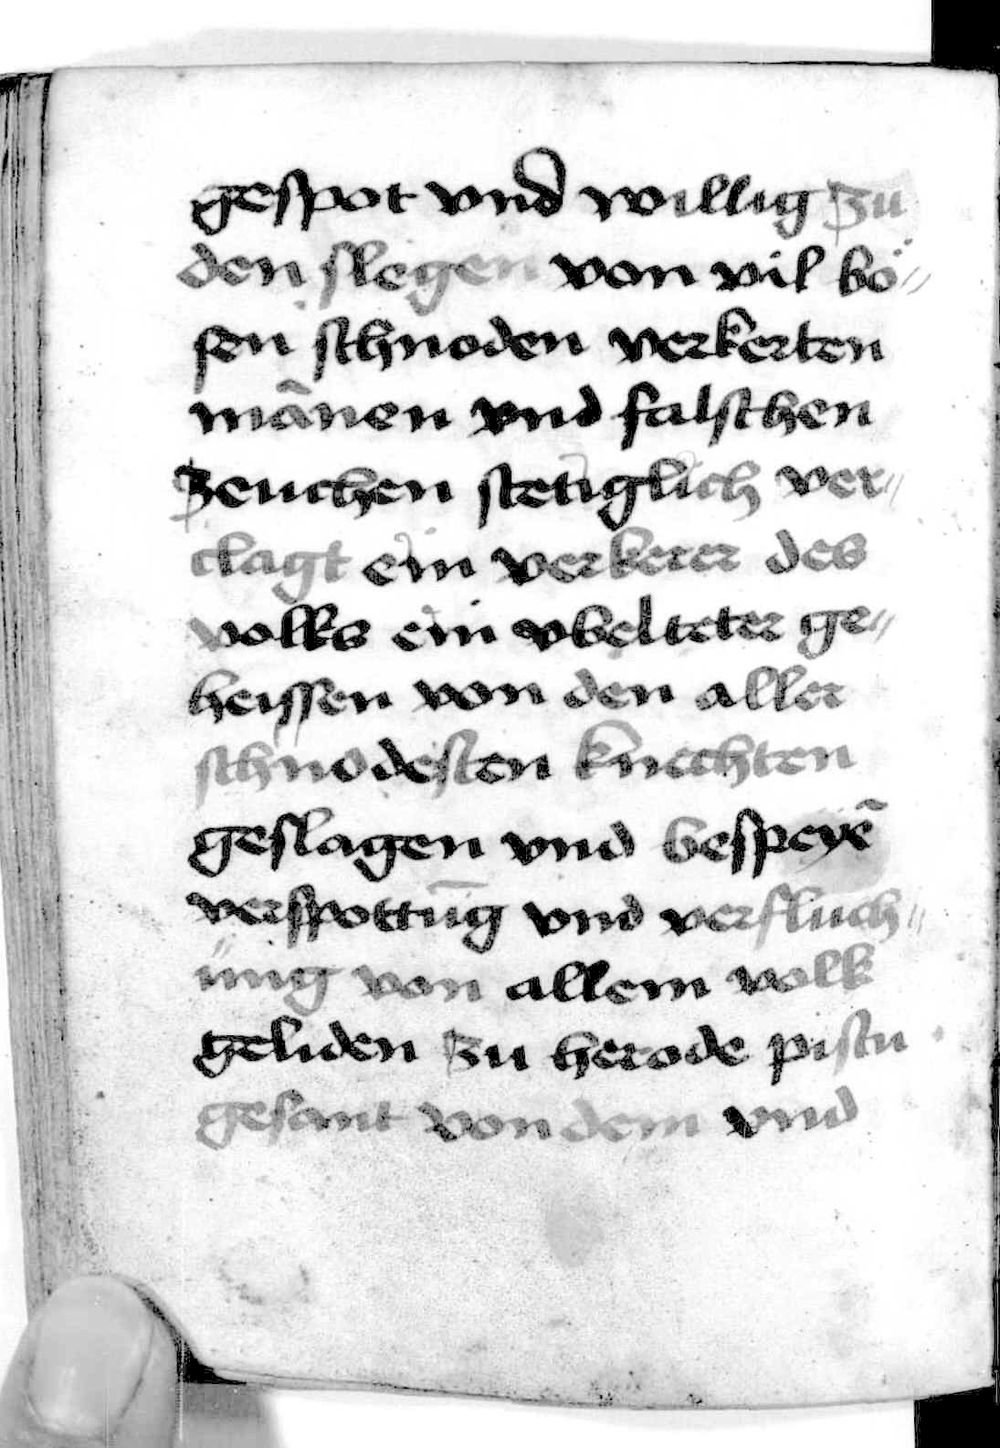 gespot vnd willig zu
den slegen von vil bö⸗
sen schnoden verkerten
mānen vnd falschen
zeuchen stetiglich ver⸗
clagt ein verkerer des
volks ein vbelteter ge⸗
heissen von den aller
schnodesten knechten
geslagen vnd bespeyē
verspottūg vnd verfluch⸗
ung von allem volk
geliden zu herode
gesant von dem vnd